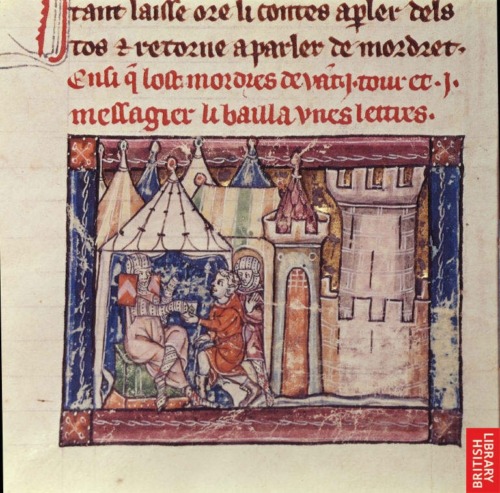 tant laisse ore li contes a pler dels
tos ⁊ retorne a parler de mordret.
Ensi q̄ lost mordres deuāt .j. tour et .j.
messagier li bailla vnes lettres.
BRITISH
LIBRARY